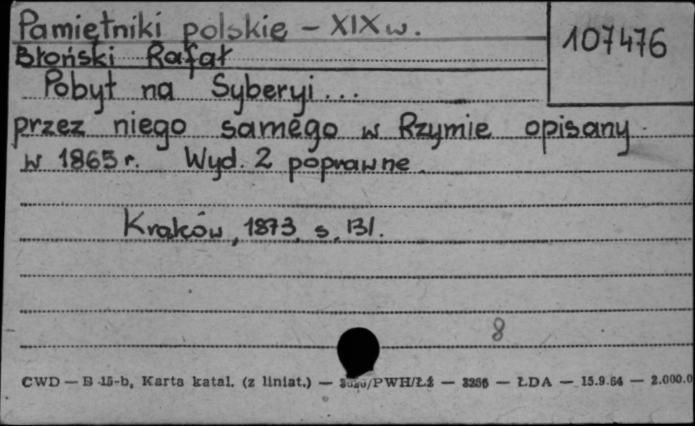 Pamiętniki polskie – XIX w.
107476
Błoński Rafał
Pobyt na Syberyi...
przez niego samego w Rzymie opisany
w 1865 r. Wyd. 2 poprawne.
Kraków, 1873, s. 131.
8
CWD — B 15-b, Karta katal. (z liniat.) — /PWH/ŁŻ — 3256 — ŁDA — 15.9.64 — 2.000.0